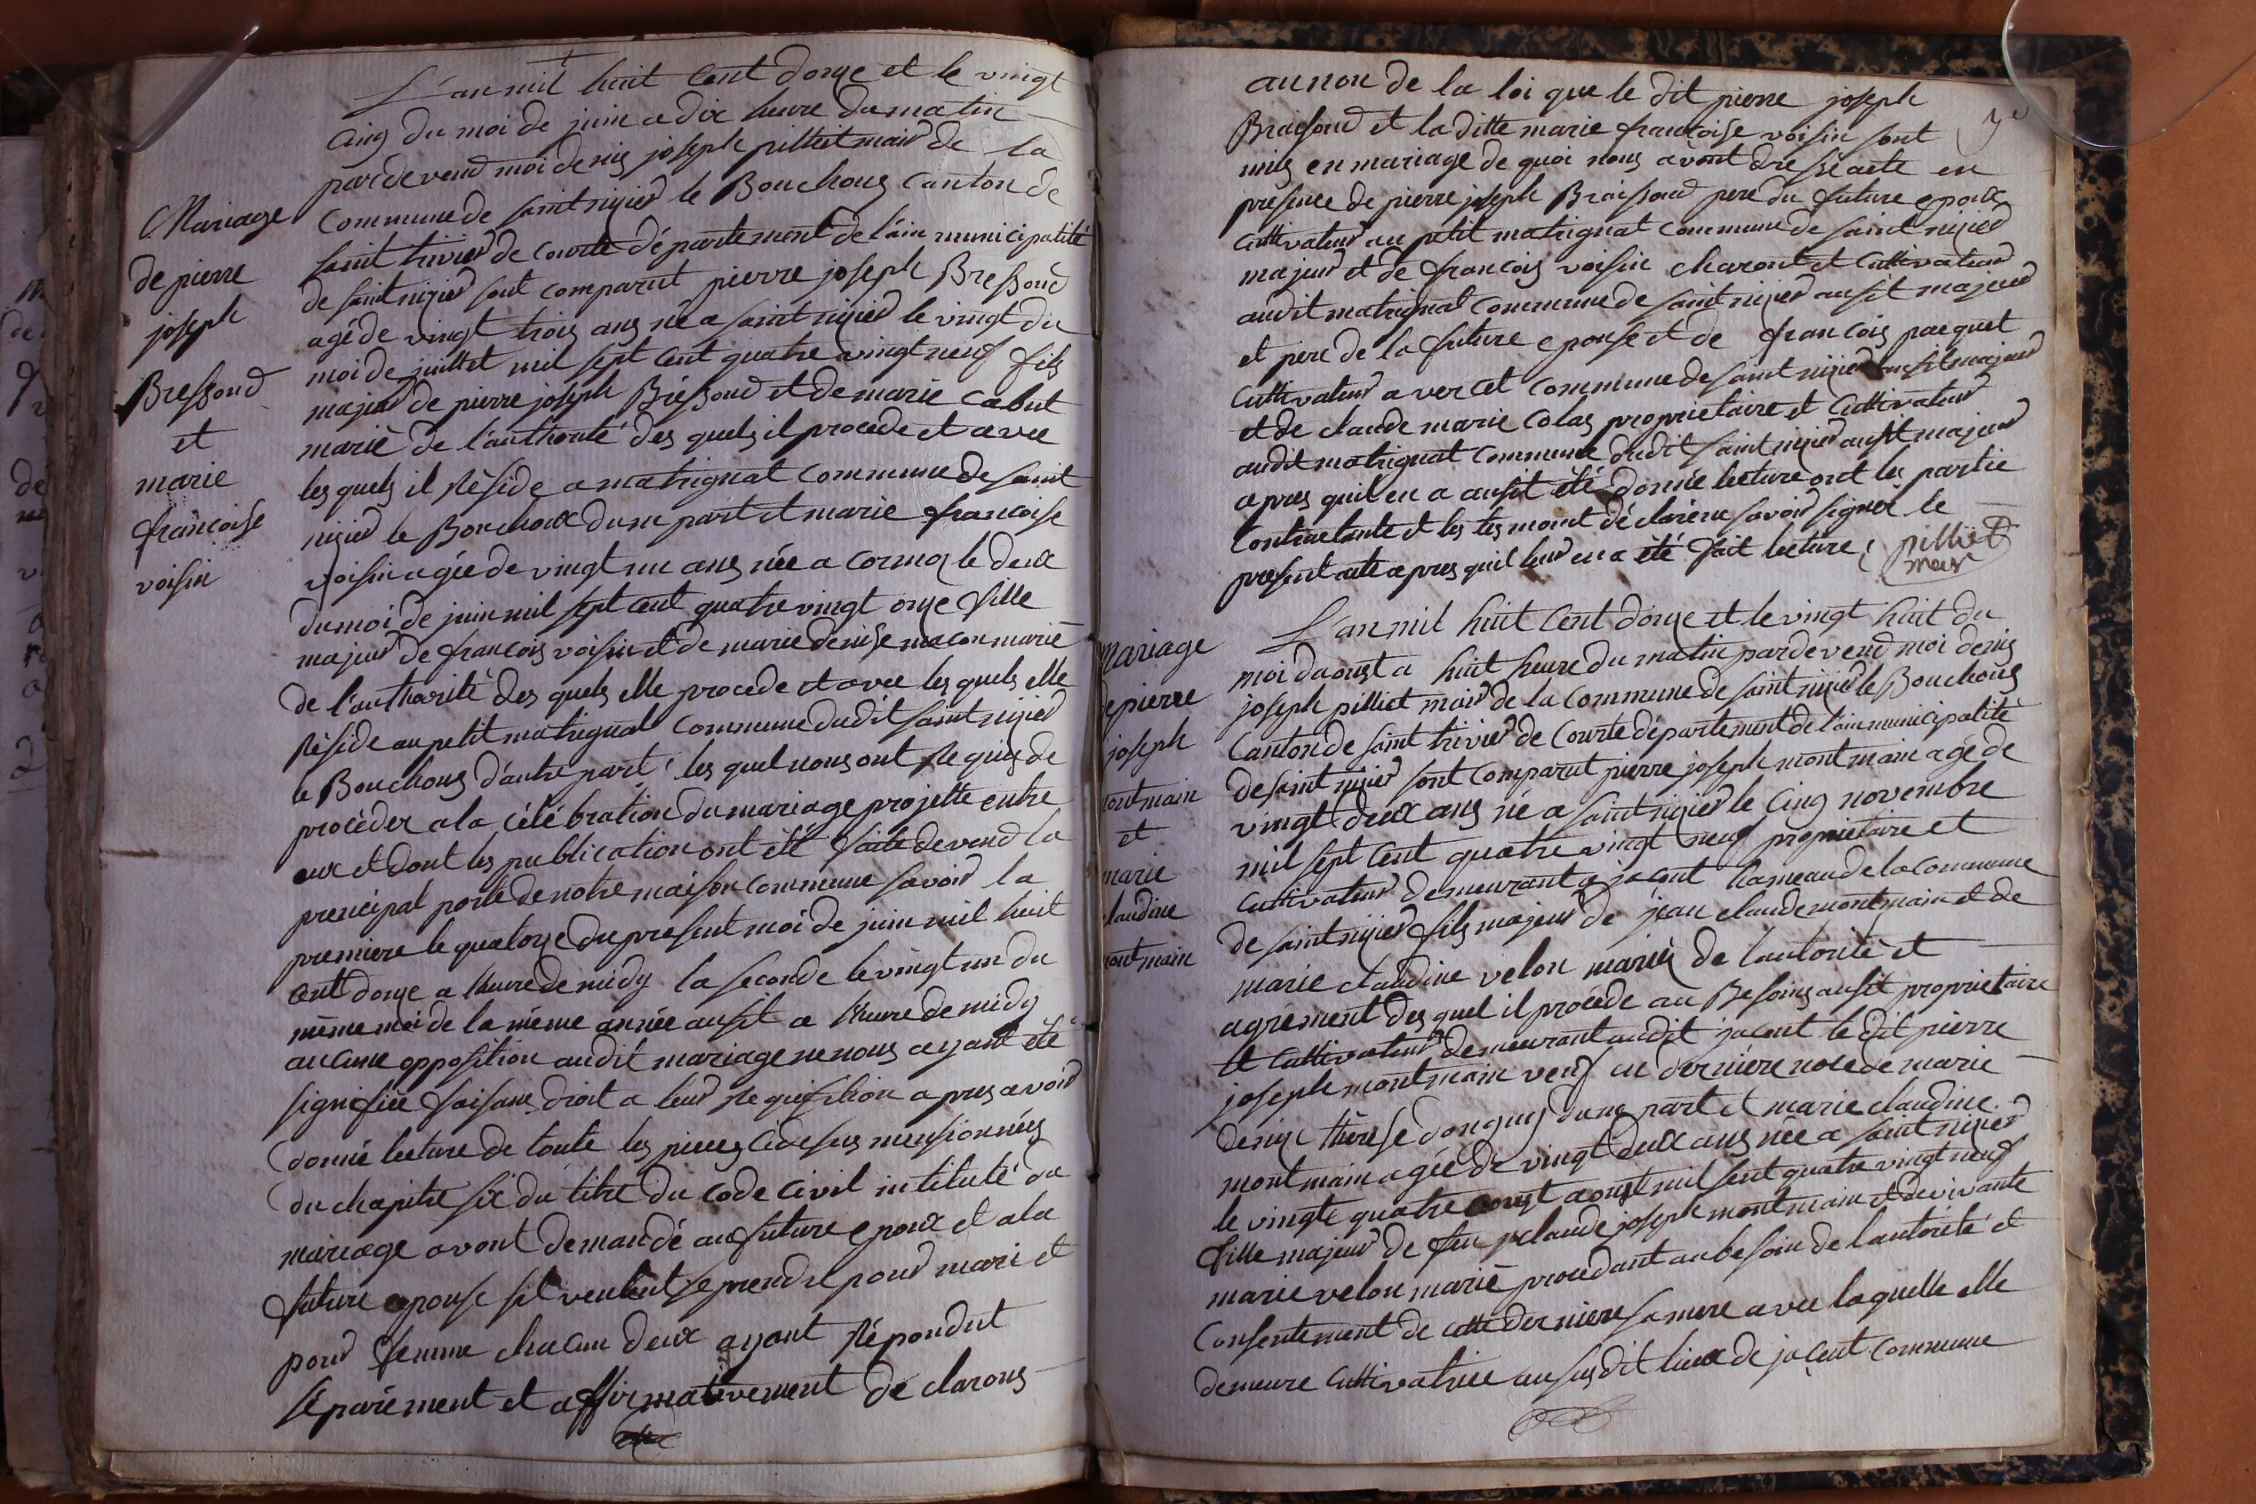 L'an mil huit cent douze et le vingt
cinq du moi de juin a dix heure du matin
pardevend moi denis joseph pilliet mair de la
commune de saint nizier le Bouchoux canton de
saint trivier de courte département de l'ain municipalité
de saint nizier sont comparut pierre joseph Bressoud
agé de vingt trois ans né a saint nizier le vingt du
moi de juillet mil sept cent quatre vingt neuf fils
majeur de pierre joseph Bressoud et de marie cabut
marié de l'authorité des quels il procede et avec
les quels il réside a matrignat commune de saint
nizier le Bouchoux dune part et marie francoise
voisin agée de vingt un ans née a cormoz le deux
du moi de juin mil sept cent quatre vingt onze fille
majeur de francois voisin et de marie denise macon marié
de l'authorité des quels elle procede et avec les quels elle
réside au petit matrignat commune dudit saint nizier
le Bouchoux dautre part, les quel nous ont requis de
procéder a la célébration du mariage projetté entre
eux et dont les publication ont été faite devend la
principal porte de notre maison commune savoir la
premiere le quatorze du present moi de juin mil huit
cent douze a heure de midy la seconde le vingt un du
même moi de la même année ausit a heure de midy
aucune opposition audit mariage ne nous ayant été
signifiée faisant droit a leur requisition apres avoir
donné lecture de toute les pieces cidesus mensionnées
du chapitre six du titre du code civil intitulé du
mariage avont demandé au future epoux et a la
future epouse sil veulent se prendre pour mari et
pour femme chacun deux ayant répondut
séparément et affirmativement déclarons
Mariage
de pierre
joseph
Bressoud
et
marie
francoise
voisin
au non de la loi que le dit pierre joseph
Braissoud et la ditte marie francoise voisin sont
unis en mariage de quoi nous avont dressé acte en
presence de pierre joseph Braissoud pere du future epoux
cultivateur au petit matrignat commune de saint nizier
majeur et de francois voisin charont et cultivateur
audit matrignat commune de saint nizier ausit majeur
et pere de la future epouse et de francois pacquet
cultivateur a vercet commune de saint nizier ausit majeur
et de claude marie colas proprietaire et cultivateur
audit matrignat commune dudit saint nizier ausit majeur
apres quil en a ausit été donnée lecture ont les partie
contractante et les tesmoint déclarér ne savoir signer le
present acte apres quil leur en a été fait lecture,
pilliet
mair
L'an mil huit cent douze et le vingt huit du
moi daoust a huit heure du matin pardevend moi denis
joseph pilliet mair de la commune de saint nizier le Bouchoux
canton de saint trivier de courte département de l'ain municipalité
de saint nizier sont comparut pierre joseph montmain agé de
vingt deux ans né a saint nizier le cinq novembre
mil sept cent quatre vingt neuf proprietaire et
cultivateur demeurant a jacent hameau de la commune
de saint nizier fils majeur de jean claude montmain et de
marie claudine velon mariés de lautorité et
agrément des quel il procéde au Besoins ausit proprietaire
et cultivateur demeurant audit jacent le dit pierre
joseph montmain veuf en derniere noce de marie
denise thérese donguy dune part et marie claudine
montmain agée de vingt deux ans née a saint nizier
le vingte quatre aoust mil sept quatre vingt neuf
fille majeur de feu claude joseph montmain et de vivante
marie velon marié procedant au besoin de lautorité et
consentement de cette derniere sa mere avec laquelle elle
demeure cultivatrice au susdit lieux de jacent commune
mariage
de pierre
joseph
montmain
et
marie
claudine
montmain